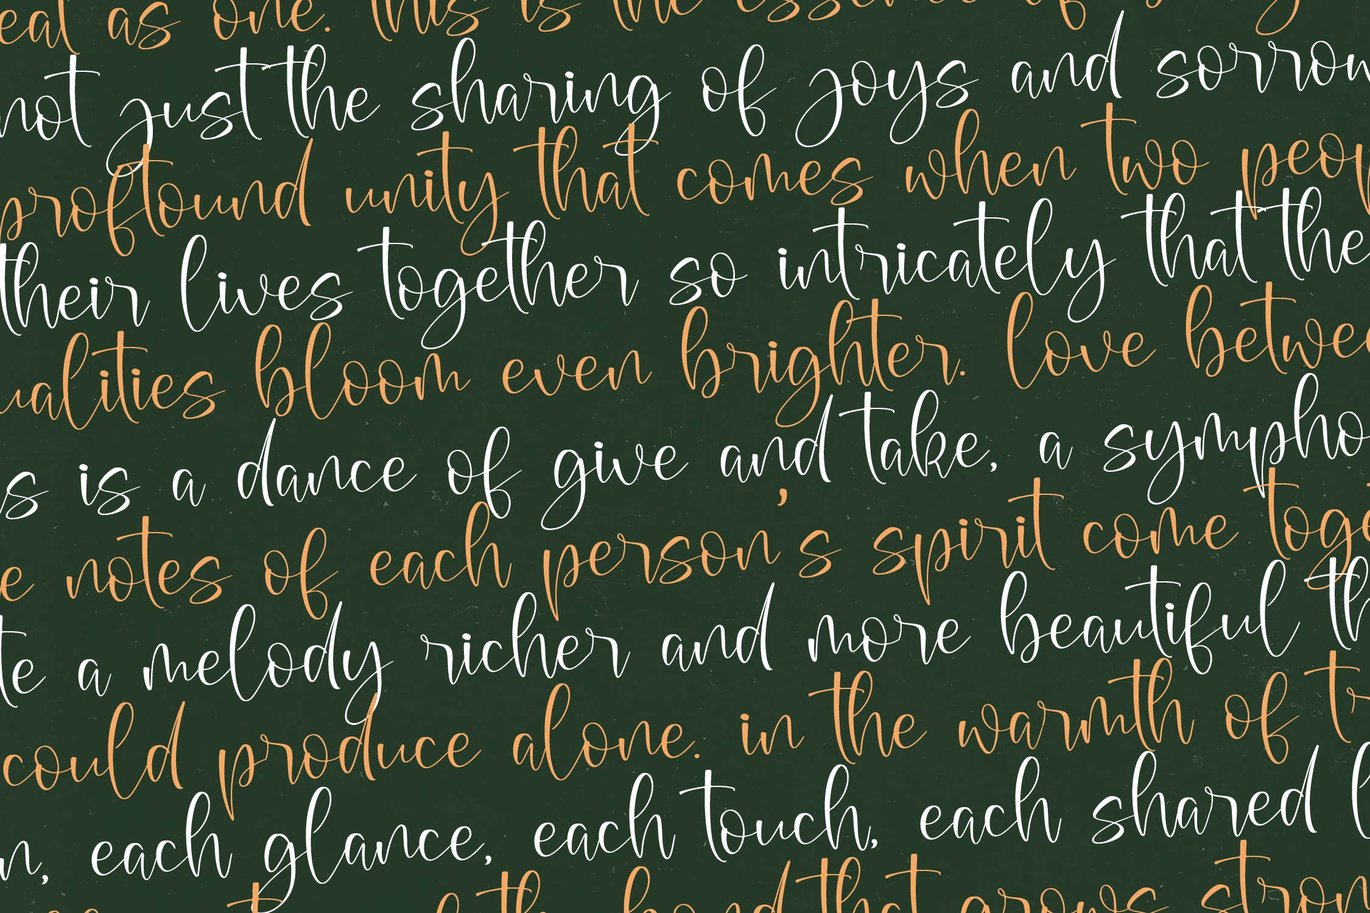 eat as one. this is the essence of
not just the sharing of joys and sorrow
profound unity that comes when two peop
their lives together so intricately that the
ualities bloom even brighter. love betwee
s is a dance of give and take, a sympho
e notes of each person's spirit come toge
te a melody richer and more beautiful th
could produce alone. in the warmth of tr
n, each glance, each touch, each shared l
of the bond that grows stron